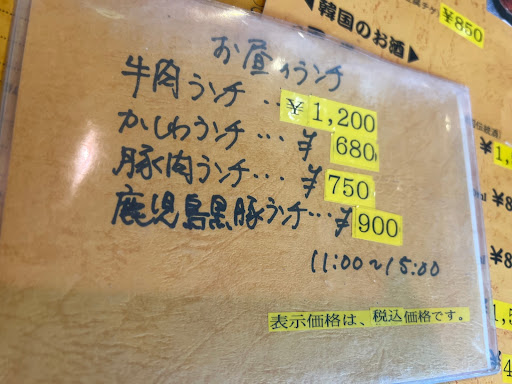 お昼のランチ
牛肉ランチ…¥1,200
かしわランチ…¥680
豚肉ランチ…¥750
鹿児島黒豚ランチ…¥900
11:00〜15:00
表示価格は、税込価格です。
¥850
◀韓国のお酒▶